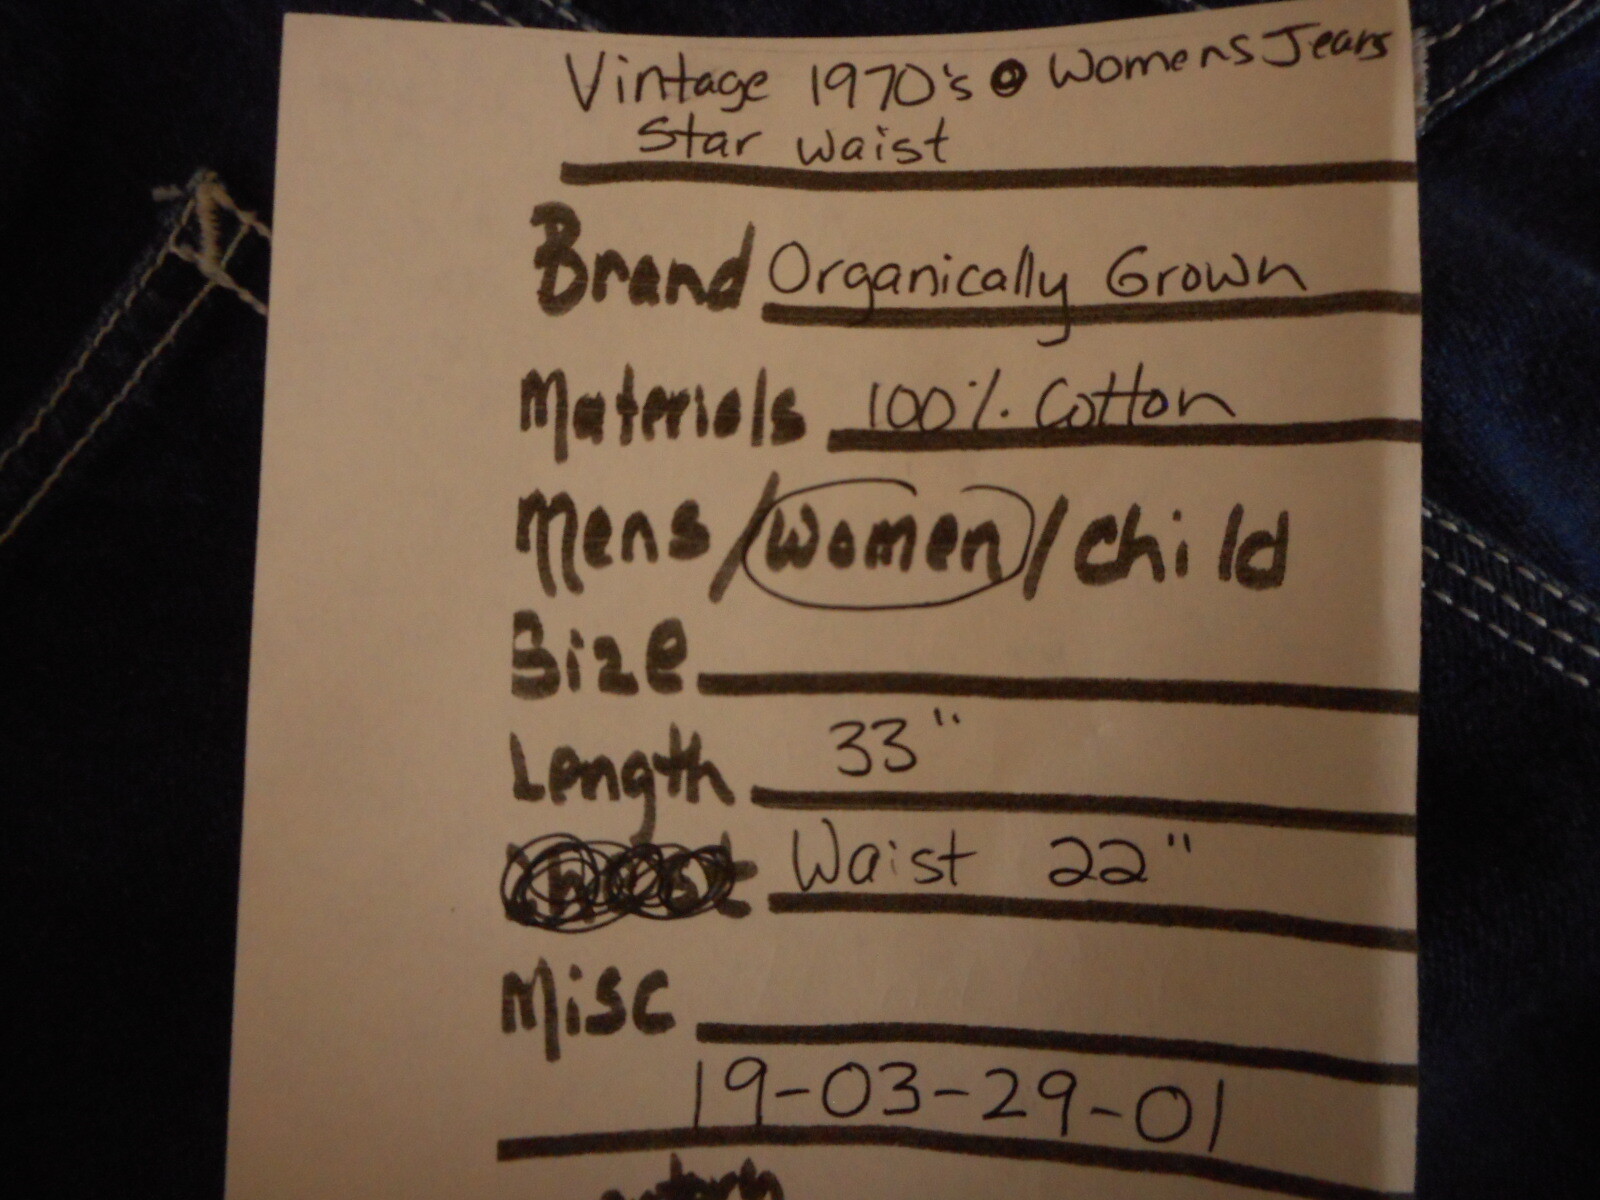 Vintage 1970's Womens Jeans
Star Waist
Brand Organically Grown
Materials 100% Cotton
Mens/Women/Child
Size
Length 33"
Waist 22"
Misc
19-03-29-01